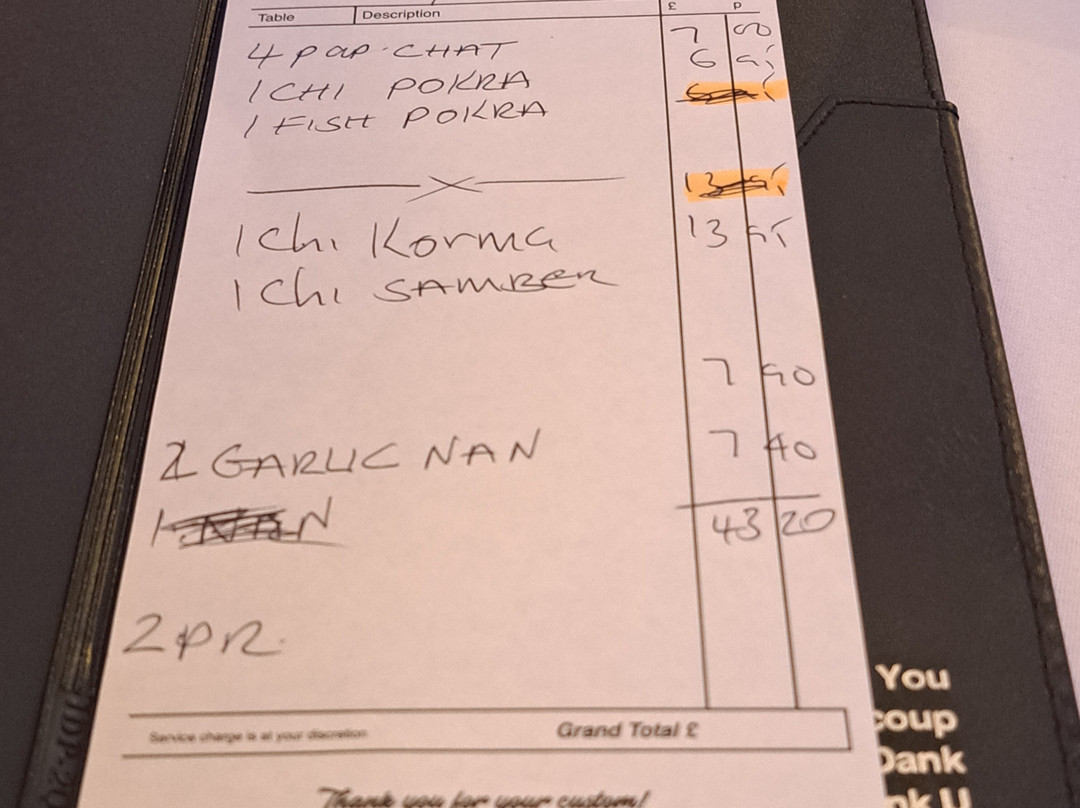 Table Description £ p
4 pap · CHAT 7 00
1 CHI POKRA 6 95
1 FISH POKRA
1 Chi Korma 13 95
1 Chi SAMBER
7 90
2 GARLIC NAN 7 40
43 20
2 PR.
Service charge is at your discretion Grand Total £
Thank you for your custom!
You
coup
Dank
nk U